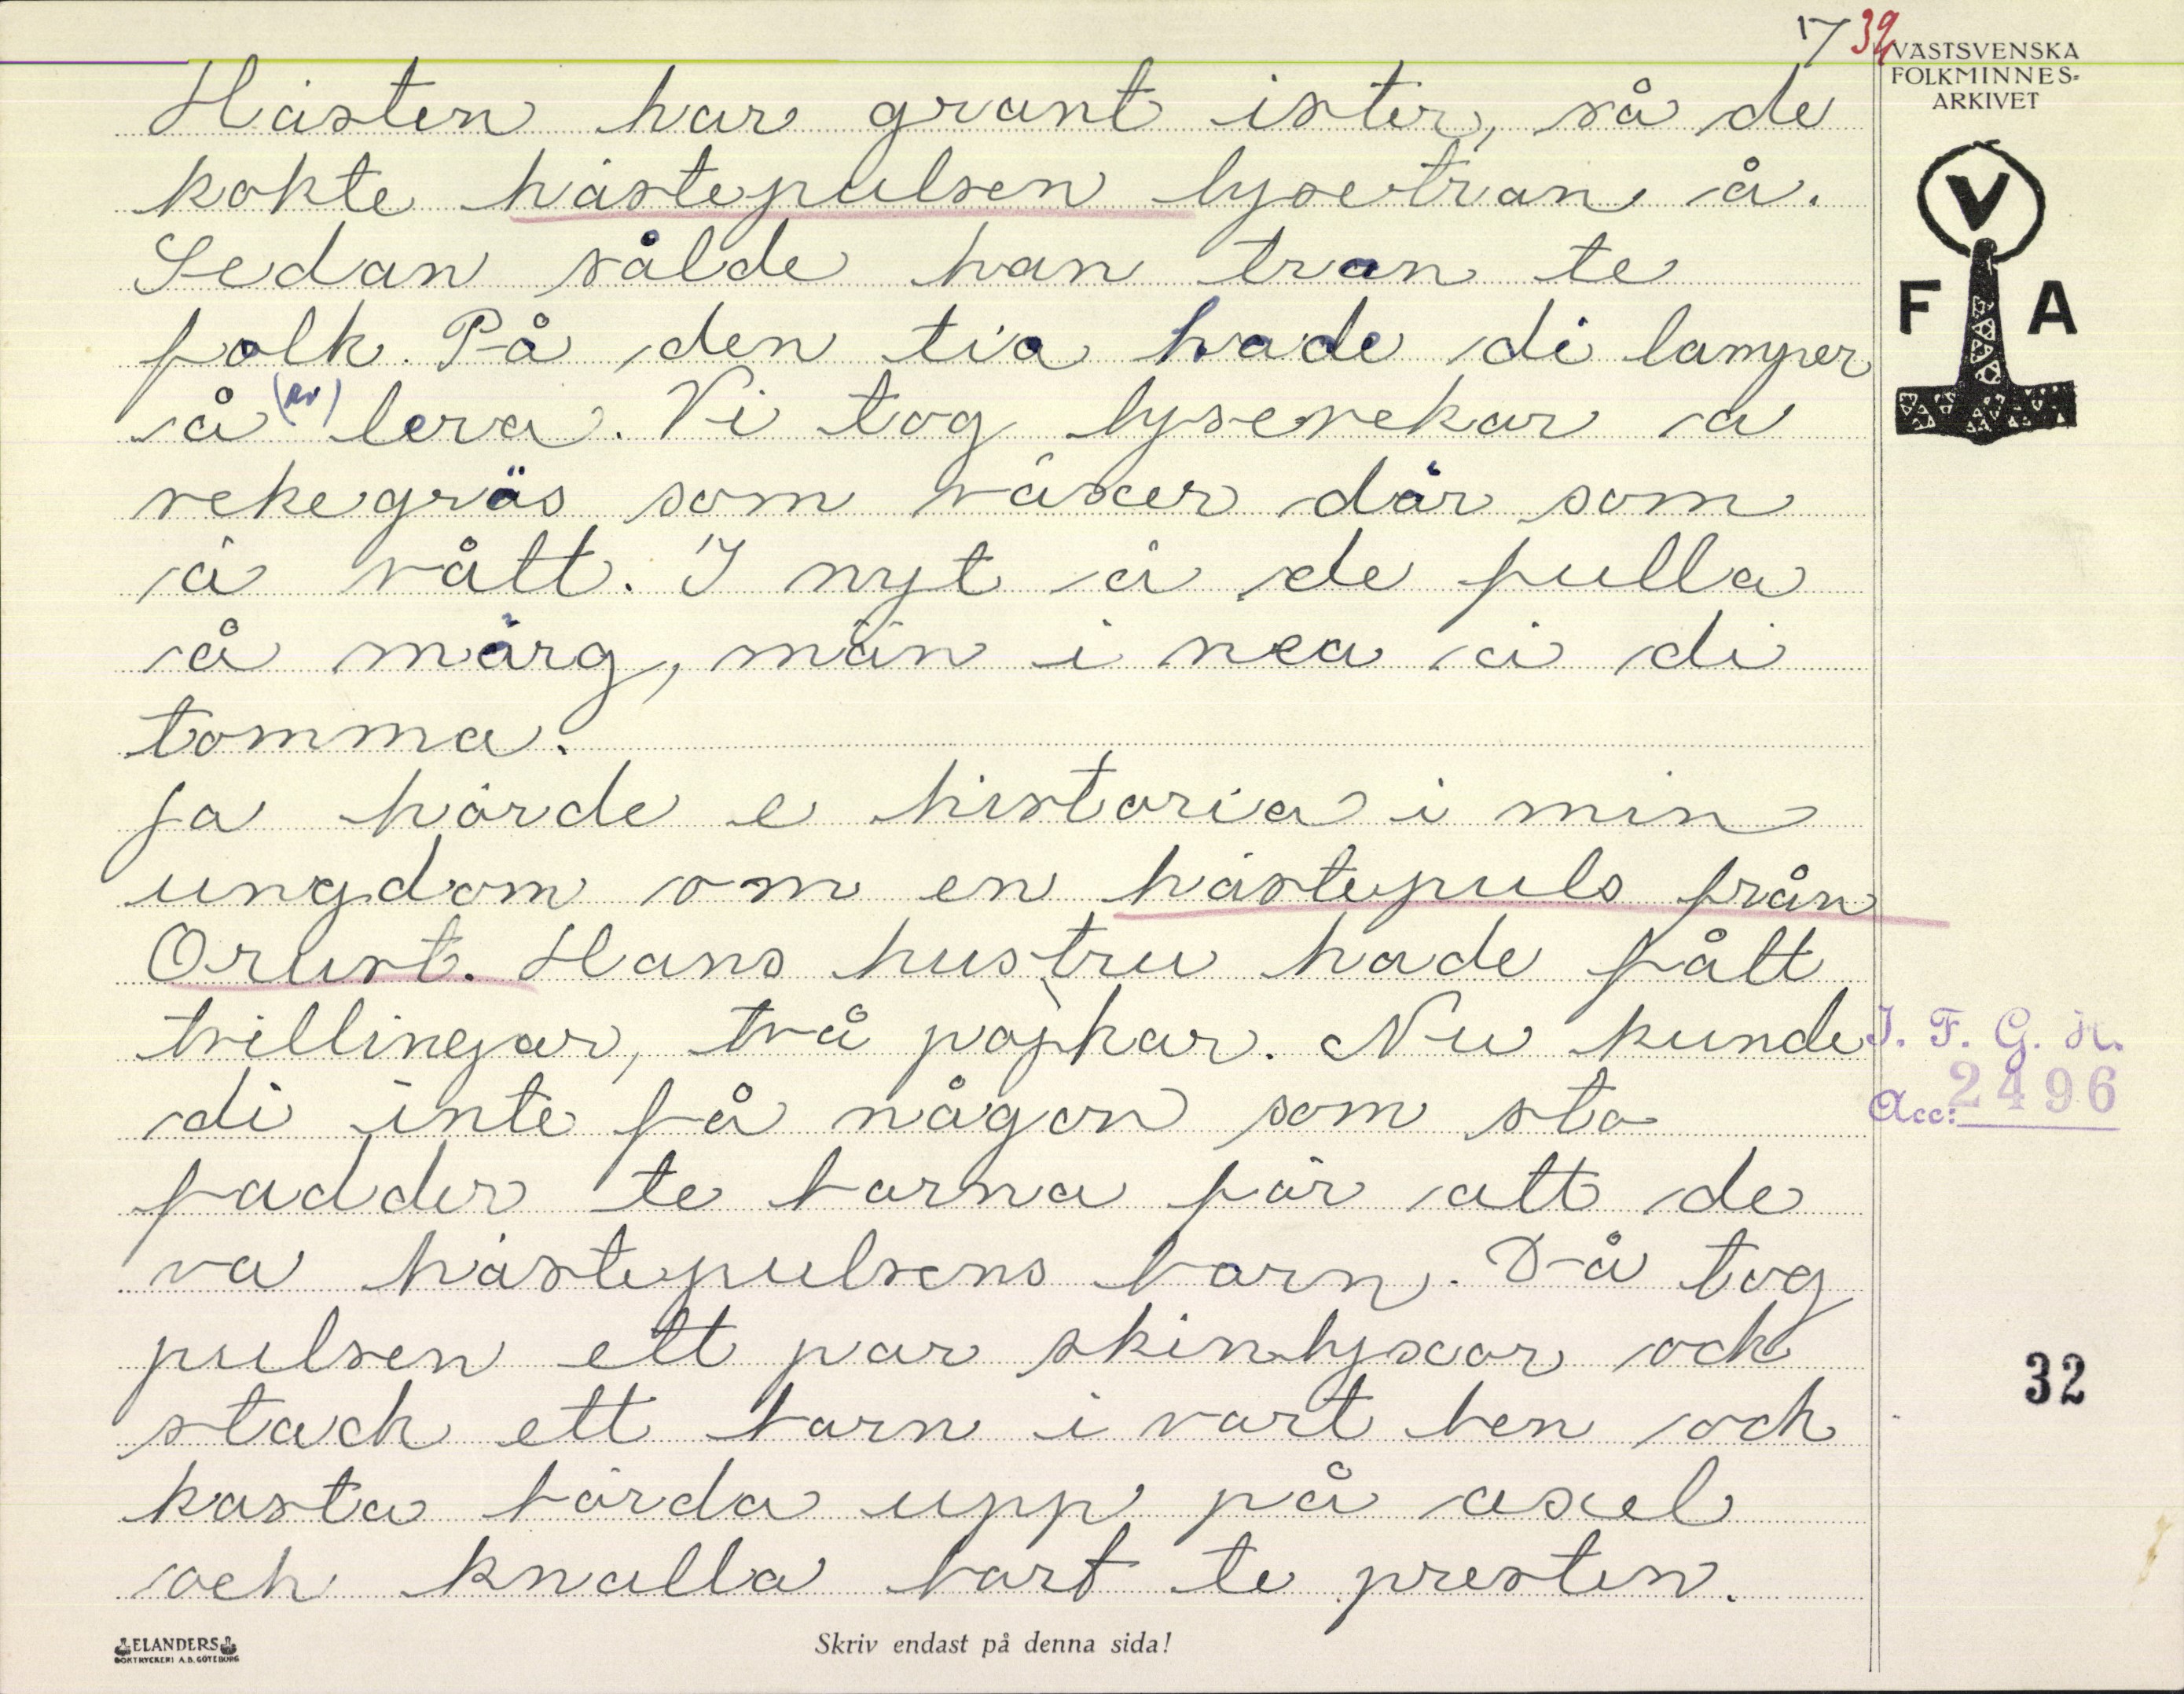 17 39
VÄSTSVENSKA
FOLKMINNES-
ARKIVET
V
F A
Hästen har grant ister, så de
kokte hästepulsen lysetran å.
Sedan sålde han tran te
folk. På den tia hade di lamper
å (av) lera. Vi tog lysevekar a
vekegräs som växer där som
ä vått. I nyt ä de fulla
å märg, män i nea ä di
tomma.
Ja hörde e historia i min
ungdom om en hästepuls från
Orust. Hans hustru hade fått
tvillingar, två pojkar. Nu kunde
di inte få någon som sto
fadder te barna för att de
va hästepulsens barn. Då tog
pulsen ett par skinbyxor och
stack ett barn i vart ben och
kasta börda upp på axel
och knalla bort te presten.
I. F. G. H.
Acc: 2496
32
ELANDERS
BOKTRYCKERI A.B. GÖTEBORG
Skriv endast på denna sida!